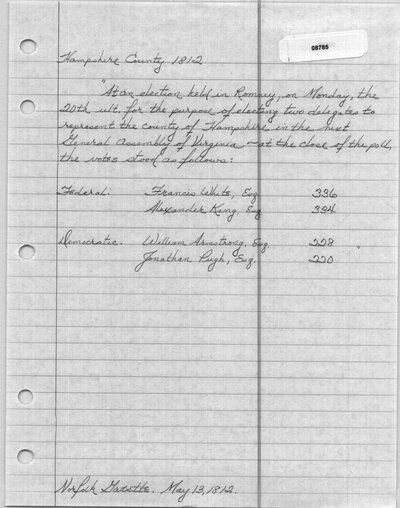 08785
Hampshire County 1812
"At an election held in Romney, on Monday, the
20th ult. for the purpose of electing two delegates to
represent the county of Hampshire in the next
General Assembly of Virginia - at the close of the poll,
the votes stood as follows:
Federal. Francis White, Esq. 336
Alexander King, Esq 334
Democratic. William Armstrong, Esq. 228
Jonathan Pugh, Esq. 220
Norfolk Gazette. May 13, 1812.